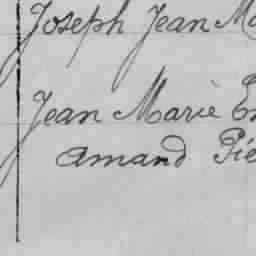 Joseph Jean
Jean Marie
Amand